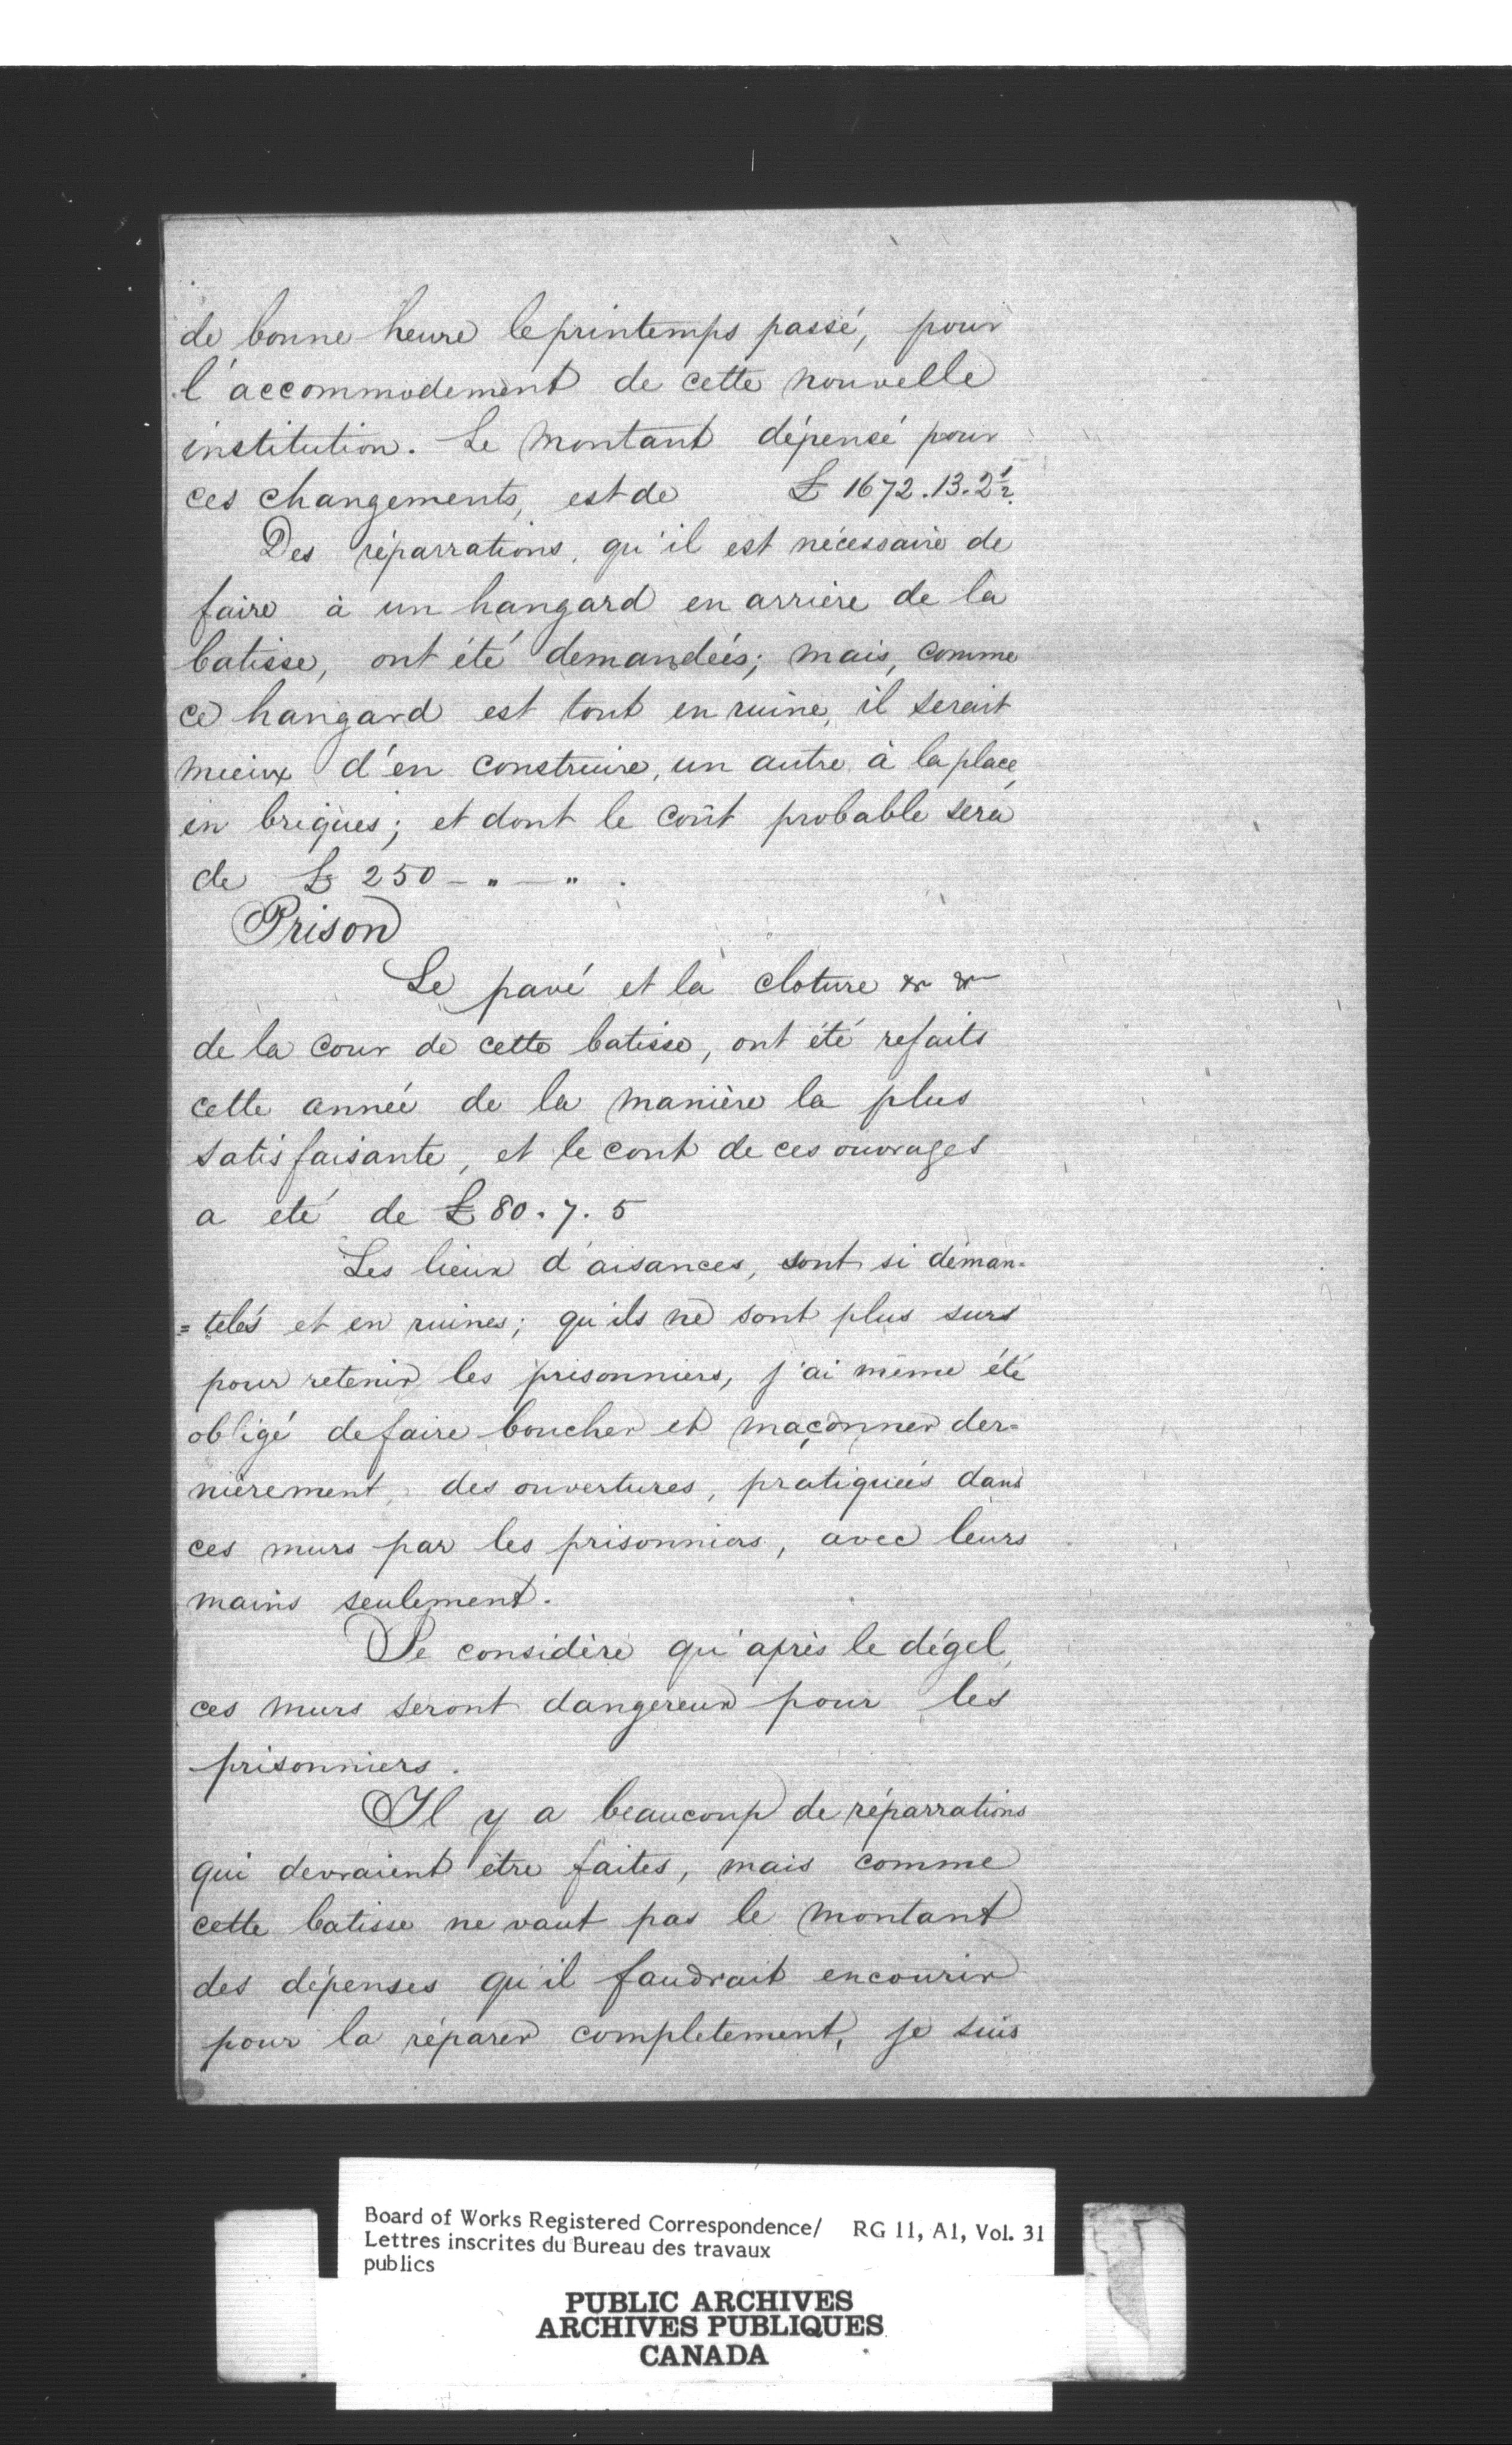 de bonne heure le printemps passé, pour
l'accommodement de cette nouvelle
institution. Le montant dépensé pour
ces changements, est de £ 1672.13.2½
Des réparrations, qu'il est nécessaire de
faire à un hangard en arrière de la
batisse, ont été demandées; mais, comme
ce hangard est tout en ruine, il serait
mieux d'en construire, un autre à la place,
en briques; et dont le coût probable sera
de £ 250 - " - " .
Prison
Le pavé et la cloture & &
de la cour de cette batisse, ont été refaits
cette année de la manière la plus
satisfaisante, et le cout de ces ouvrages
a été de £ 80. 7. 5
Les lieux d'aisances, sont si déman-
=telés et en ruines; qu'ils ne sont plus surs
pour retenir les prisonniers, j'ai même été
obligé de faire boucher et maçonner der-
nièrement, des ouvertures, pratiquées dans
ces murs par les prisonniers, avec leurs
mains seulement.
Je considère qu'après le dégel,
ces murs seront dangereux pour les
prisonniers.
Il y a beaucoup de réparrations
qui devraient être faites, mais comme
cette batisse ne vaut pas le montant
des dépenses qu'il faudrait encourir
pour la réparer completement, je suis
Board of Works Registered Correspondence/ RG 11, A1, Vol. 31
Lettres inscrites du Bureau des travaux
publics
PUBLIC ARCHIVES
ARCHIVES PUBLIQUES
CANADA